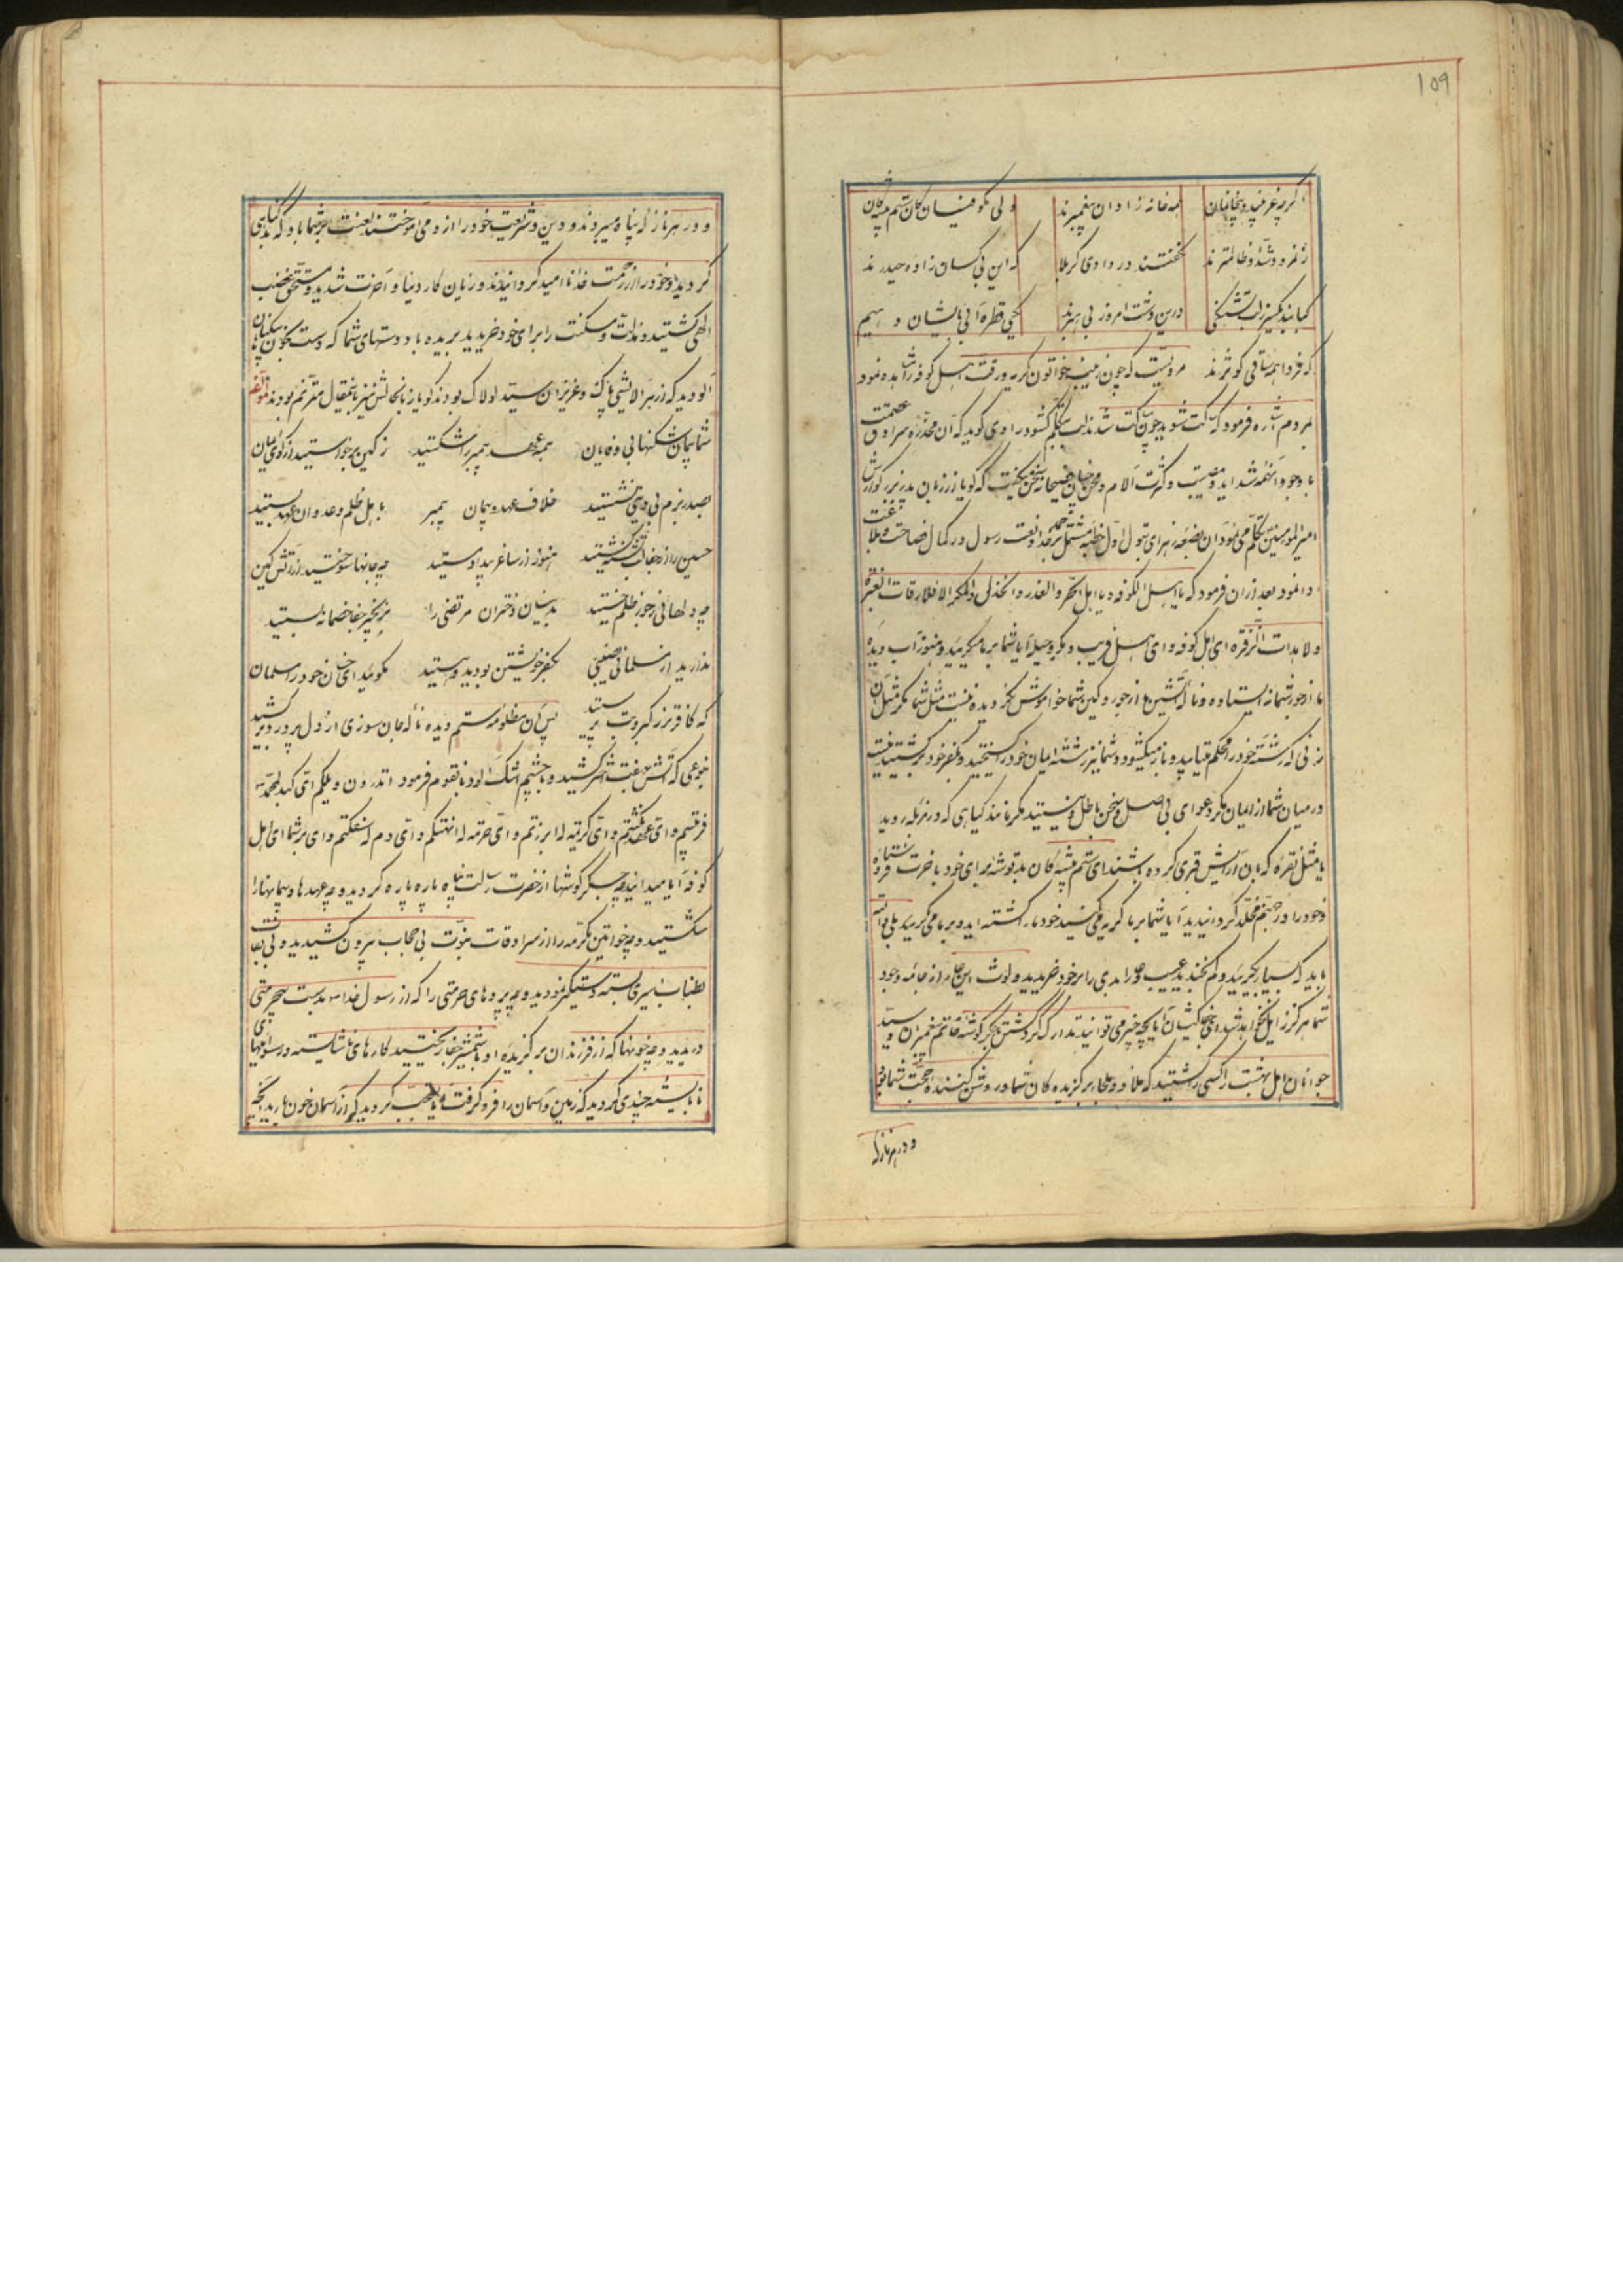 ۱۵۹
همه خانه زادان پیغمبرند ولی کوفیان کان ستم پیشه‌گان
ز نمرود و شداد ظالمترند نگفتند در وادی کربلا که این بی‌کسان زاده حیدرند
درین دشت امروز بی یاورند یکی قطره آبی بایشان دهیم
که فردا همه ساقی کوثرند مرویست که چون زینب خواتون گریه و رقت اهل کوفه را مشاهده نمود
بمردم اشاره فرمود که ساکت شوید چون ساکت شدند لب بتکلم گشود راوی گوید که آن مخدره سرادق عصمت
با وجود آنهمه شداید و مصیبت و کثرت آلام و محن چنان فصیحانه سخن میگفت که گویا از زبان پدر بزرگوارش
امیرالمومنین تکلم می‌نمود آن بضعه زهرای بتول اول خطبه مشتمل بر حمد خدا و نعت رسول در کمال فصاحت و بلاغت
ادا نمود بعد از آن فرمود که یا اهل الکوفه و یا اهل الختر والغدر والخذل والمکر الا فلا رقات العبرة
ولا هدات الزفرة ای اهل کوفه و ای اهل فریب و مکر و حیله آیا شما بر ما میگریید و هنوز آب دیده
ما از جور شما نه ایستاده و ناله آتشین ما از جور و کین شما خواموش نگردیده نیست مثل شما مگر مثل آن
زنی که رشته خود را محکم میتابید و باز میگشود و شما نیز رشته ایمان خود را گسیختید و بکفر خود برگشتید نیست
در میان شما از ایمان مگر دعوای بی اصل و سخن باطل و نیستید مگر مانند گیاهی که در مزبله روید
یا مثل نقره که بآن آرایش قبری کرده باشند ای ستم پیشه کان بد توشه برای خود بآخرت فرستاده
و خود را در جهنم مخلد گردانیدید آیا شما بر ما گریه میکنید خود ما را کشته اید و بر ما می گریید بلی والله
باید که بسیار بگریید و کم بخندید عیب و عار ابدی را بر خود خریدید و لوث این عار از جامه وجود
شما هرگز زایل نخواهد شد ای جفاکیشان آیا بچه چیز می توانید تدارک کرد کشتن جگر گوشه خاتم پیغمبران و سید
جوانان اهل بهشت را کسی را کشتید که ملاذ و ملجا برگزیده کان شما و روشن کننده حجت شما بود
و در هر نازله
و در هر نازله پناه باو میبردند و دین و شریعت خود را ازو می آموختند لعنت بر شما باد که گناه بدی
کردید و خود را از رحمت خدا نا امید گردانیدند و زیان کار دنیا و آخرت شدید و مستحق غضب
الهی گشتید و مذلت و مسکنت را برای خود خریدید بریده باد دستهای شما که دست بخون بیگناهان
آلودید که از هر آلایشی پاک و عزیزان سید لولاک بودند گویا زبانحالش نیز باینمقال مترنم بودند لمولفه
شما پیمان شکنهای بی وفایان همه عهد پیمبر را شکستید ز کین برخواستید از کوی ایمان
بصدر بزم بی دینی نشستید خلاف عهد و پیمان پیمبر با اهل ظلم و عدوان عهد بستید
حسین را از جفا لب تشنه کشتید هنوز از ساغر بیداد مستید چه جانها سوختید از آتش کین
چه دلهائی ز جور ظلم خستید بدینسان دختران مرتضی را بزنجیر جفا خصمانه بستید
ندارید از مسلمانی نصیبی بکفر خویشتن بودید و هستید مگوئید ای خسان خود را مسلمان
که کافرتر ز گبر و بت پرستید پس آن مظلومه ستم دیده ناله جان سوزی از دل پر درد بر کشید
بنوعی که آتش بهفت شهر کشید و با چشم اشک آلود بانقوم فرمود اتدرون ویلکم ای کبد لمحمد
فرثتم و ای عهد نکثتم و ای کریمة له ابرزتم و ای حرمة له انتهکتم و ای دم له سفکتم وای بر شما ای اهل
کوفه آیا میدانید چه جگر گوشها از حضرت رسالت پناه پاره پاره کردید و چه عهدها و پیمانها را
شکستید و چه خواتین مکرمه را از سرادقات نبوت بی حجاب بیرون کشیدید و بی نقاب
بطناب اسیری بسته دستگیر نمودید و چه پردهای حرمتی را که از رسول خدا بدست بیحرمتی
دریدید و چه خونها که از فرزندان برگزیده او بشمشیر جفا ریختید کارهای ناشایسته و رسوائیهای
نابایسته چندی کردید که زمین و آسمان را فرو گرفت آیا تعجب کردید که از آسمان خون بارید آنچه